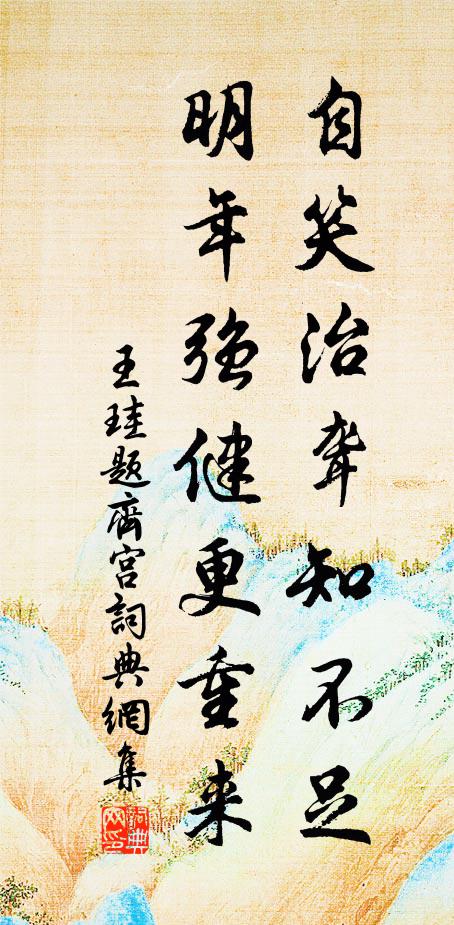 自笑治聋知不足
明年强健更重来
王珪题齋宫詞典網集
詞典